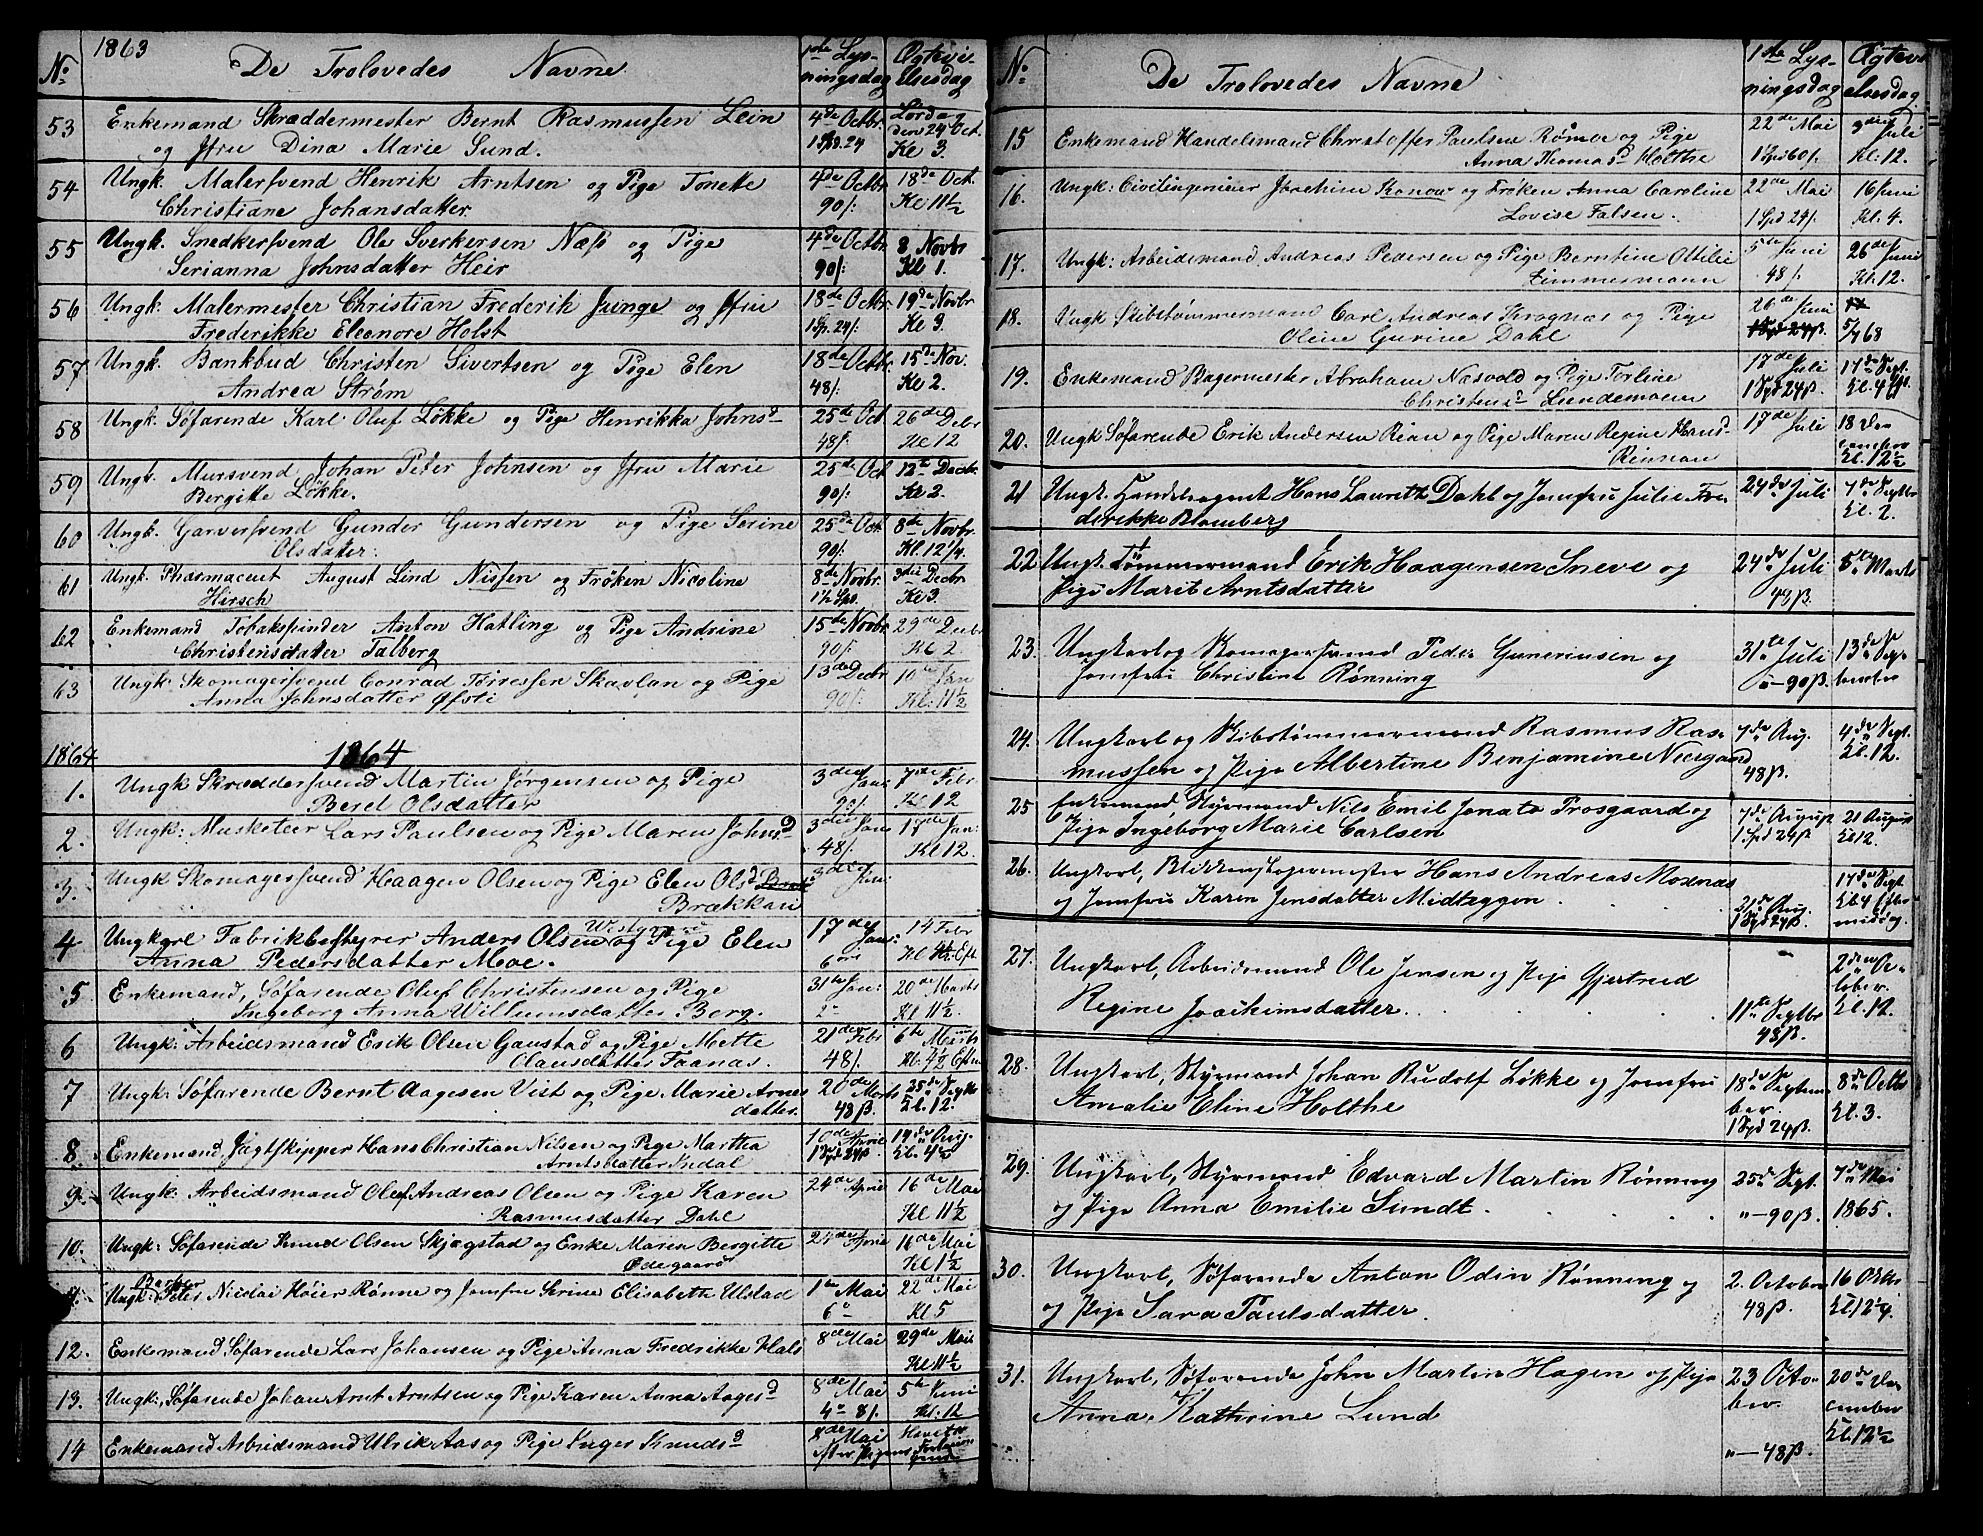 1863
No
De Trolovedes Navne
1ste Lys-
ningsdag
Ægtevi-
elsesdag
53 Enkemand Skræddermester Bernt Rasmussen Lein
og Jfru Dina Marie Sund.
4de Octbr.
1 Spd. 24
Lørdag
den 24 Oct.
Kl 3.
54 Ungk. Malersvend Henrik Arntsen og Pige Tonette
Christiane Johansdatter
4de Octbr
90/:
18de Oct.
Kl 11½
55 Ungk. Snedkersvend Ole Sverkersen Næss og Pige
Serianna Johnsdatter Heir
4de Octbr
90/:
8 Novbr
Kl 1.
56 Ungk. Malermester Christian Frederik Junge og Jfru
Frederikke Eleonore Holst
18de Octbr
1 Sp. 24/:
19de Novbr
Kl 3.
57 Ungk. Bankbud Christen Sivertsen og Pige Elen
Andrea Strøm
18de Octbr.
48/:
15de Nov:
Kl 2.
58 Ungk. Søfarende Karl Oluf Løkke og Pige Henrikka Johnsd
25de Oct
48/:
26de Debr
Kl 12
59 Ungk. Mursvend Johan Peter Johnsen og Jfru Marie
Bergitte Løkke.
25de Oct
90/:
12te Decbr.
Kl 2.
60 Ungk. Garversvend Gunder Gundersen og Pige Serine
Olsdatter.
25de Oct.
90/:
8de Novbr
Kl. 12¼.
61 Ungk. Pharmaceut August Lind Nissen og Frøken Nicoline
Hirsch
8de Novbr.
1½ Spd.
3die Decbr
Kl 3.
62 Enkemand Tobakspinder Anton Hatling og Pige Andrine
Christensdatter Talberg
15de Novbr
90/:
29de Decbr
Kl 2
63 Ungk. Skomagersvend Conrad Skavlan og Pige
Anna Johnsdatter Øfsti
13de Decbr
90/:
10de Jan
Kl: 11½
1864 1864
1. Ungk Skræddersvend Martin Jørgensen og Pige
Beret Olsdatter
3die Jan:
90/:
7de Febr
Kl 12
2. Ungk: Musketeer Lars Paulsen og Pige Maren Johnsd
3die Jan
48/:
17de Jan:
Kl 12.
3. Ungk Skomagersvend Haagen Olsen og Pige Elen Olsd
Brækkan
3die Jan:
4 Ungkarl Fabrikbestyrer Anders Olsen og Pige Elen
Anna Pedersdatter Moe.
17de Jan:
14 Febr
5 Enkemand, Søfarende Oluf Christensen og Pige
Ingeborg Anna Willumsdatter Berg.
31te Jan:
20de Marts
Kl 11½.
6 Ungk: Arbeidsmand Erik Olsen Gaustad og Pige Mette
Olausdatter Faanæs.
21de Febr
48/.
6te Marts
Kl. 4½ Eftm
7 Ungk: Søfarende Bernt Aagesen Vist og Pige Marie Arnts
datter.
20de Marts
48ß.
25de
Kl. 12.
8. Enkemand Jagtskipper Hans Christian Nilsen og Pige Martha
Arntsdatter Indal
10de April
1 Spd 24ß
14de Aug.
9. Ungk: Arbeidsmand Oluf Andreas Olsen og Pige Karen
Rasmusdatter Dahl
24de April
16de Mai
Kl 11½
10. Ungk: Søfarende Knud Olsen Skjægstad og Enke Maren Bergitte
Ødegaard
24de April
16de Mai
Kl 1½
Ungk: Peter Nicolai Høier Rønne og Jomfru Serine Elisabeth Ulstad
1ste Mai
22de Mai
Kl 5
12. Enkemand Søfarende Lars Johansen og Pige Anna Fredrikke Hals
8de Mai
29de Mai
Kl 11½
13. Ungk:, Søfarende Johan Arnt Arntsen og Pige Karen Anna Aagesd
8de Mai
5te Juni
Kl: 12
14 Enkemand Arbeidsmand Ulrik Aas og Pige Inger Knudsd
8de Mai
No
De Trolovedes Navne
1ste Lys-
ningsdag
Ægtevi
elsesdag
15 Enkemand Handelsmand Christoffer Paulsen Rømoe og Pige
Anna Thomasd Holthe
22de Mai
1 Spd 60/.
3die Juli
Kl: 12.
16. Ungk: Civilingeniør Joachim Konow og Frøken Anna Caroline
Lovise Falsen.
22de Mai
1 Spd 24/.
16 Juni
Kl. 4.
17. Ungk: Arbeidsmand Andreas Pedersen og Pige Berntine Ottilie
Zimmermann
5te Juni
48/.
26de Juni
Kl. 12.
18. Ungk Skibstømmermand Carl Andreas Krognæs og Pige
Oline Gurine Dahl
26de Juni
1 Spd 24ß.
5/7 68
19. Enkemand Bagermester Abraham Næsvold og Pige Torline
Christensd Lundemoen
17de Juli
1 Spd 24ß.
17de Sept.
20. Ungk Søfarende Erik Andersen Rian og Pige Maren Regine Hansd
Rinnan
17de Juli
18 De
cember
Kl. 12½
21 Ungk. Handelsagent Hans Lauritz Dahl og Jomfru Julie Fre
derikke Blomberg
24de Juli
7de Septbr
Kl. 2.
22 Ungk. Tømmermand Erik Haagensen Sneve og
Pige Marit Arntsdatter
24de Juli
48ß.
5te Marts
23. Ungkarl og Skomagersvend Peder Gunerinsen og
Jomfru Christine Rønning
31te Juli
"-90ß.
13de Sep-
tember
24. Ungkarl og Skibstømmermand Rasmus Ras-
mussen og Pige Albertine Benjamine Neergaard
7de Aug.
48ß.
4de Sept.
Kl. 12.
25 Enkemand Styrmand Nils Emil Jonata Trosgaard og
Pige Ingeborg Marie Carlsen
7de August
1 Spd 24ß
21 August
Kl 12.
26. Ungkarl, Blikkenslagermester Hans Andreas Moxnæs
og Jomfru Karen Jensdatter Midteggen.
21de Aug.
1 Spd 24ß.
17de Sept.
Kl. 4 Efter
middag.
27. Ungkarl, Arbeidsmand Ole Jensen og Pige Gjertrud
Regine Joachimsdatter.
11te Septbr
48ß.
2den Oc-
tober.
Kl. 12.
28. Ungkarl, Styrmand Johan Rudolf Løkke og Jomfru
Amalie Eline Holthe
18de Septem
ber.
1 Spd 24ß
8de Octbr
Kl. 3.
29. Ungkarl, Styrmand Edvard Martin Rønning
og Pige Anna Emilie Sundt.
25de Sept.
"-90ß.
7de Mai
1865.
30. Ungkarl, Søfarende Anton Odin Rønning og
og Pige Sara Paulsdatter.
2. October
48ß.
16 Octbr
Kl. 12¼.
31. Ungkarl, Søfarende John Martin Hagen og Pige
Anna Kathrine Lund
23 Octo-
ber.
"-48ß
20de De
cember
Kl. 12½